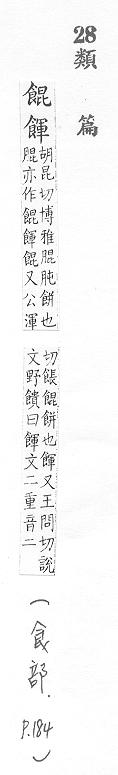 28類篇
餛餫胡昆切博雅䐊肫餅也
䐊亦作餛餫餛又公渾
切餦餛餅也餫又王問切說
文野饋曰餫文二重音二
(食部. P.184)